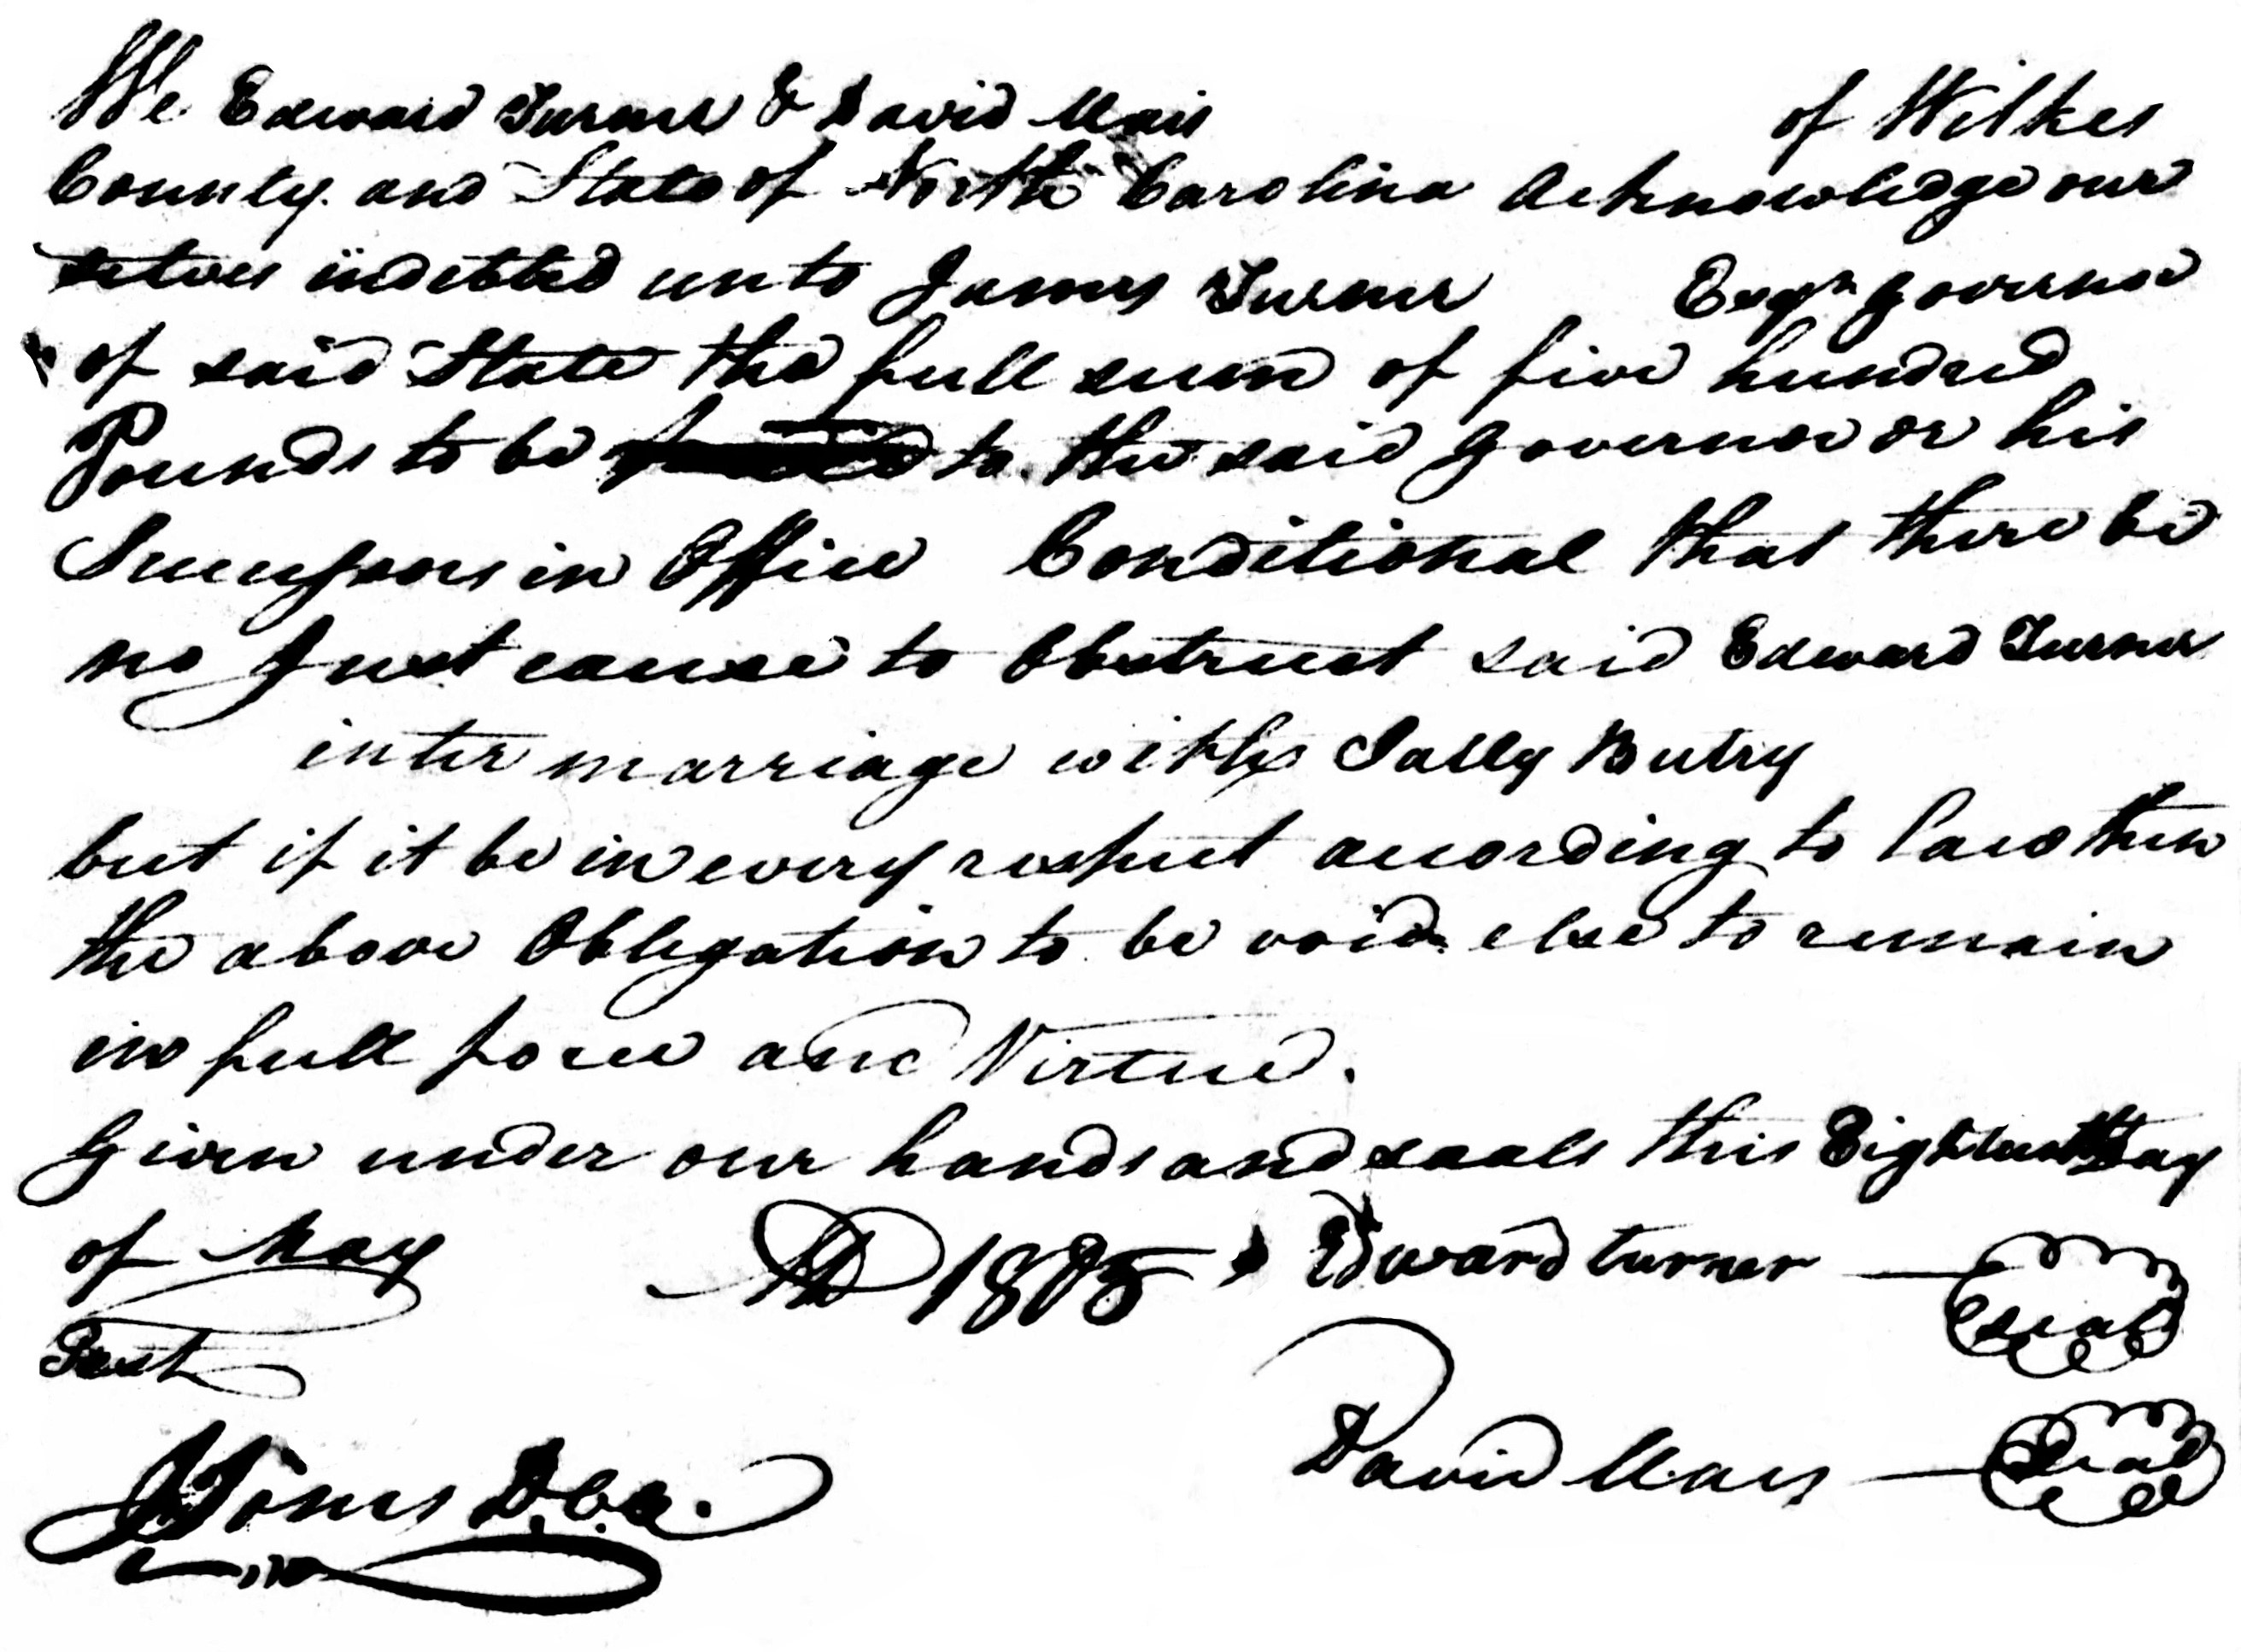 We Edward Turner & David Mais of Wilkes
County and State of North Carolina Acknowledge our
selves indebted unto James Turner Esqr governor
of said State the full sum of five hundred
Pounds to be to the said governor or his
Successors in Office Conditional that there be
no Just cause to Obstruct said Edward Turner
inter marriage with Sally Butry
but if it be in every respect according to law then
the above Obligation to be void else to remain
in full force and Virtue.
Given under our hands and seals this Eighteenth day
of May AD 1805 Edward turner seal
Test
David Mais Seal